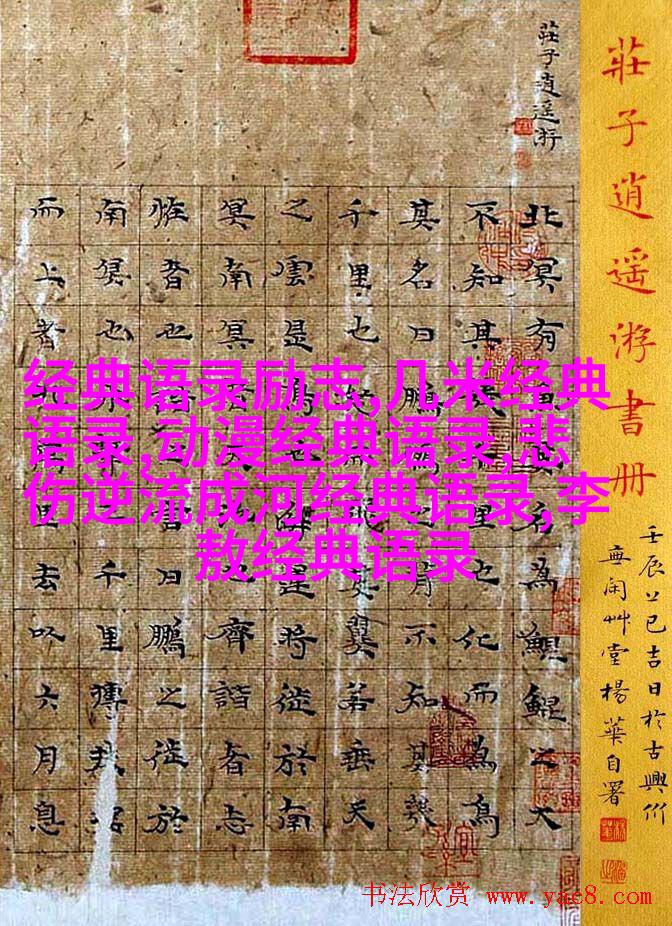 经典语录励志,几米经典
语录,动漫经典语录,悲
伤逆流成河经典语录,李
敖经典语录
莊子逍遥游書册
壬辰乙巳吉日於古興所
無闲艸堂楊華自署
莊子逍遥游
北冥有名為鯤鯤之大
不知其里也化而為鳥
其名曰鵬背不知其幾
千里也其翼若垂天
之雲是鳥運將徙於南
冥南冥天齊諧者志
恠者也書曰鵬之徙於
南冥也千里摶
而上者九去以六月息
书法欣赏 www.yac8.com